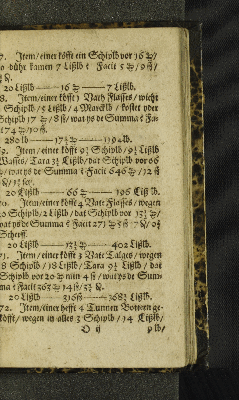 7. Item/einer köfft ein Schiplb vor 16 ℔/
o dühr kamen 7 Lißlb ? Facit 5 ℔/9 ß/
20 Lißlb —— 16 ℔ —— 7 Lißlb.
8. Item/einer köfft 3 Vath Flasses/wicht
Schiplb/5 Lißlb/4 Marcklb/kostet vder
Schiplb 17 ℔/8 ß/wat ys de Summa ? Fa-
it 74 ℔/10 ß.
280 lb —— 17½ ℔ —— 1194 lb.
69. Item/einer köfft 9½ Schiplb/9½ Lißlb
Wasses/Tara 3½ Lißlb/dat Schiplb vor 66
℔/wat ys de Summa ? Facit 646 ℔/12 ß
20 Lißlb —— 66 ℔ —— 196 Lißlb.
70. Item/einer köffe 4 Vate Flasses/wegen
20 Schiplb/2 Lißlb/dat Schiplb vor 13½ ℔/
wat ys de Summa ? Facit 271 ℔ 5 ß
Scherff.
20 Lißlb —— 13½ ℔ —— 402 Lißlb.
71. Item/einer köfft 3 Vate Talges/wegen
8 Schiplb/18 Lißlb/Tara 9½ Lißlb/dat
Schiplb vor 20 ℔ min 4 ß/wat ys de Sum-
ma ? Facit 363 ℔ 14 ß/
20 Lißlb —— 316 ß —— 368½ Lißlb.
72. Item/einer hefft 4 Tunnen Bottern ge-
köfft/wegen in alles 3 Schiplb/14 Lißlb/
D ij plb/